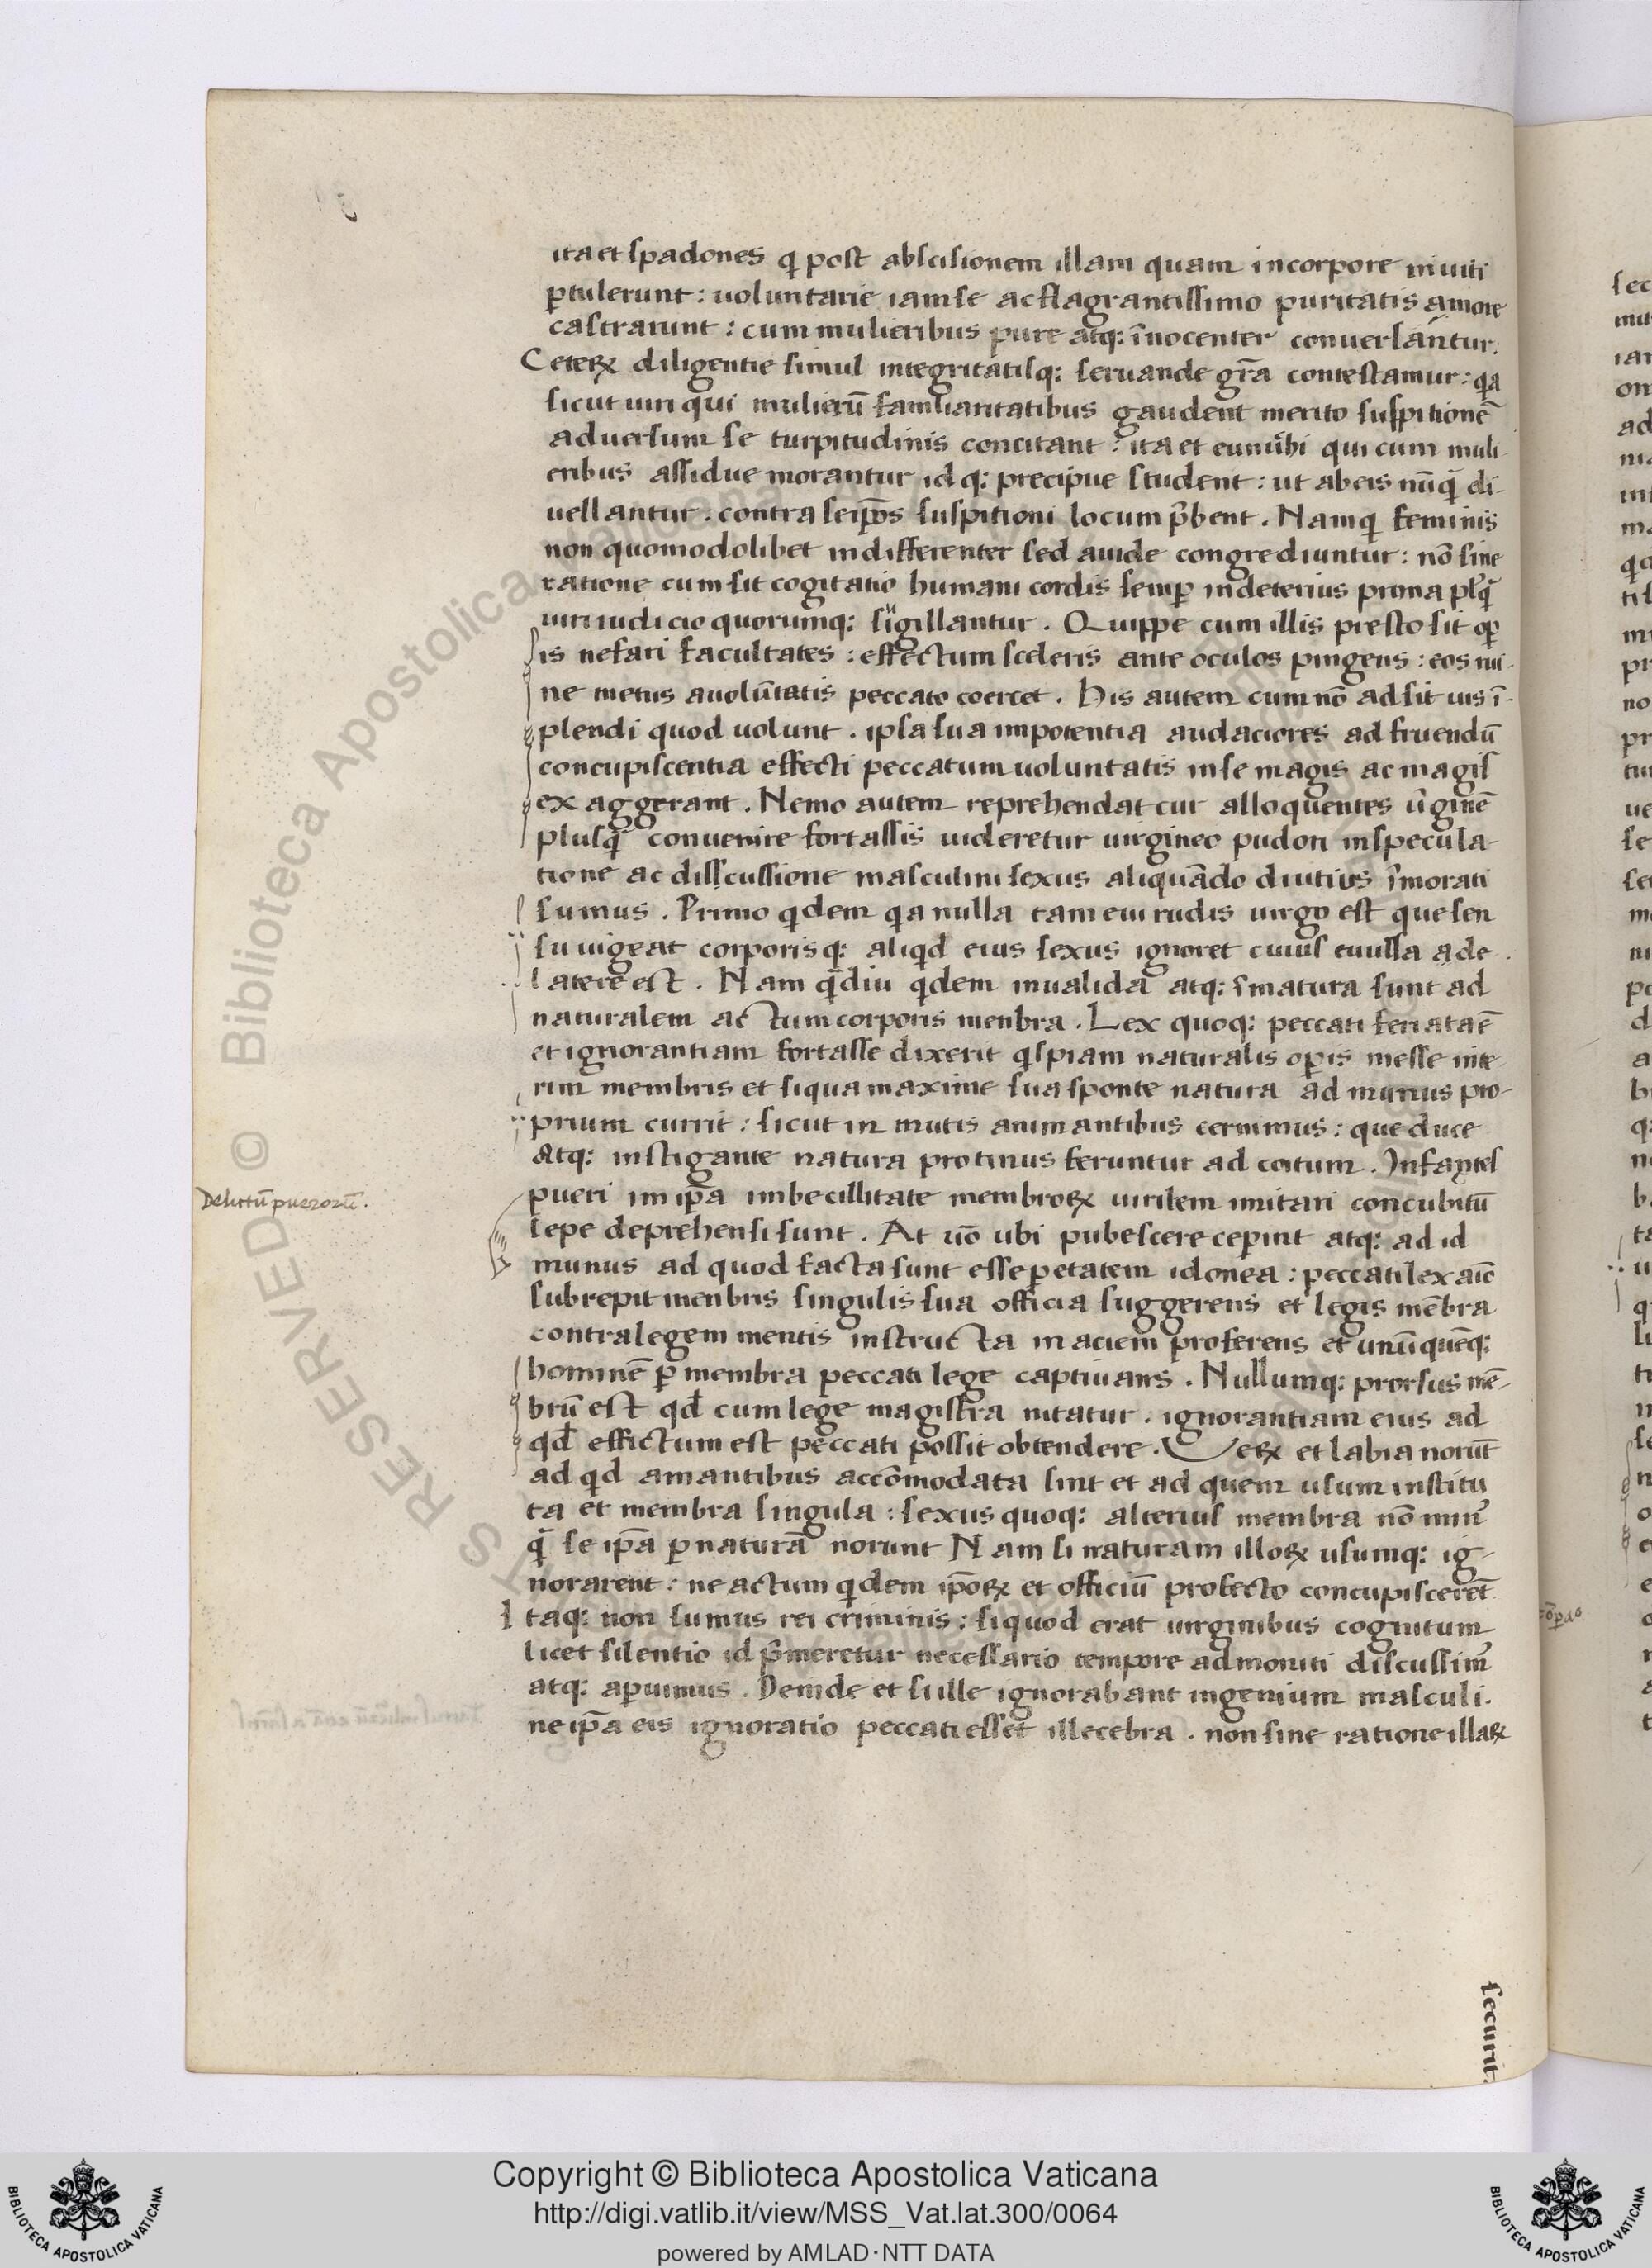 ita et spadones q̄ post abscisionem illam quam in corpore inuiti
ꝑtulerunt : uoluntarie iam se ac flagrantissimo puritatis amore
castrarunt : cum mulieribus pure atq: īnocenter conuersantur.
Ceteꝝ diligentie simul integritatisq: seruande gr̄a contestamur : qa
sicut uiri qui mulierū familiaritatibus gaudent merito suspitionē
aduersum se turpitudinis concitant : ita et eunuchi qui cum muli-
eribus assidue morantur id q: precipue student : ut ab eis nūq̄ di-
uellantur . contra seip̄os suspitioni locum p̄bent . Namq̄ feminis
non quomodolibet indifferenter sed auide congrediuntur : nō sine
ratione cum sit cogitatio humani cordis semꝑ in deterius prona
uiri iudicio quorumq: sugillantur . Quippe cum illis presto sit oꝑ
is nefari facultates : effectum sceleris ante oculos pingens : eos rui-
ne metus a uolūtatis peccato coercet . His autem cum nō adsit uis ī-
plendi quod uolunt . ipsa sua impotentia audaciores ad fruendū
concupiscentia effecti peccatum uoluntatis in se magis ac magis
ex aggerant . Nemo autem reprehendat cur alloquentes ūginē
plusq̄ conuenire fortassis uideretur uirgineo pudori in specula-
tione ac disscussione masculini sexus aliquādo diutius īmorati
sumus . Primo qdem qa nulla tam eui rudis uirgo est que sen
su uigeat corporisq: aliqd eius sexus ignoret cuius
latere est . Nam q̄diu qdem inualida atq: īmatura sunt ad
naturalem actum corporis menbra . Lex quoq: peccati feriata ē
et ignorantiam fortasse dixerit qspiam naturalis oꝑis inesse inte-
rim membris et siqua maxime sua sponte natura ad munus pro-
prium currit : sicut in mutis animantibus cernimus : que duce
Atq: instigante natura protinus feruntur ad coitum . Infantes
Delictū puerorū.
pueri im ip̄a imbecillitate membroꝝ uirilem imitari concubitū
sepe deprehensi sunt . At uō ubi pubescere cepint atq: ad id
munus ad quod facta sunt esse ꝑ etatem idonea : peccati lex
subrepit menbris singulis sua officia suggerens et legis mēbra
contra legem mentis instructa in aciem proferens et unūquēq:
hominē ꝑ membra peccati lege captiuans . Nullumq: prorsus mē-
brū est qd cum lege magistra nitatur . ignorantiam eius ad
qd effictum est peccati possit obtendere . Ueꝝ et labia norūt
ad qd amantibus accōmodata sint et ad quem usum institu
ta et membra singula : sexus quoq: alterius membra nō min᾿
q̄ se ip̄a ꝑ naturā norunt Nam si naturam illoꝝ usumq: ig-
norarent : ne actum qdem ip̄oꝝ et officiū profecto concupiscerēt
Itaq: non sumus rei criminis : si quod erat uirginibus cognitum
licet silentio id p̄meretur necessario tempore admoniti discussim᾿
atq: aperuimus . Deinde et si ille ignorabant ingenium masculi .
ne ip̄a eis ignoratio peccati esset illecebra . non sine ratione illaꝝ
securit.
Copyright © Biblioteca Apostolica Vaticana
http://digi.vatlib.it/view/MSS_Vat.lat.300/0064
powered by AMLAD·NTT DATA
BIBLIOTECA APOSTOLICA VATICANA
BIBLIOTECA APOSTOLICA VATICANA